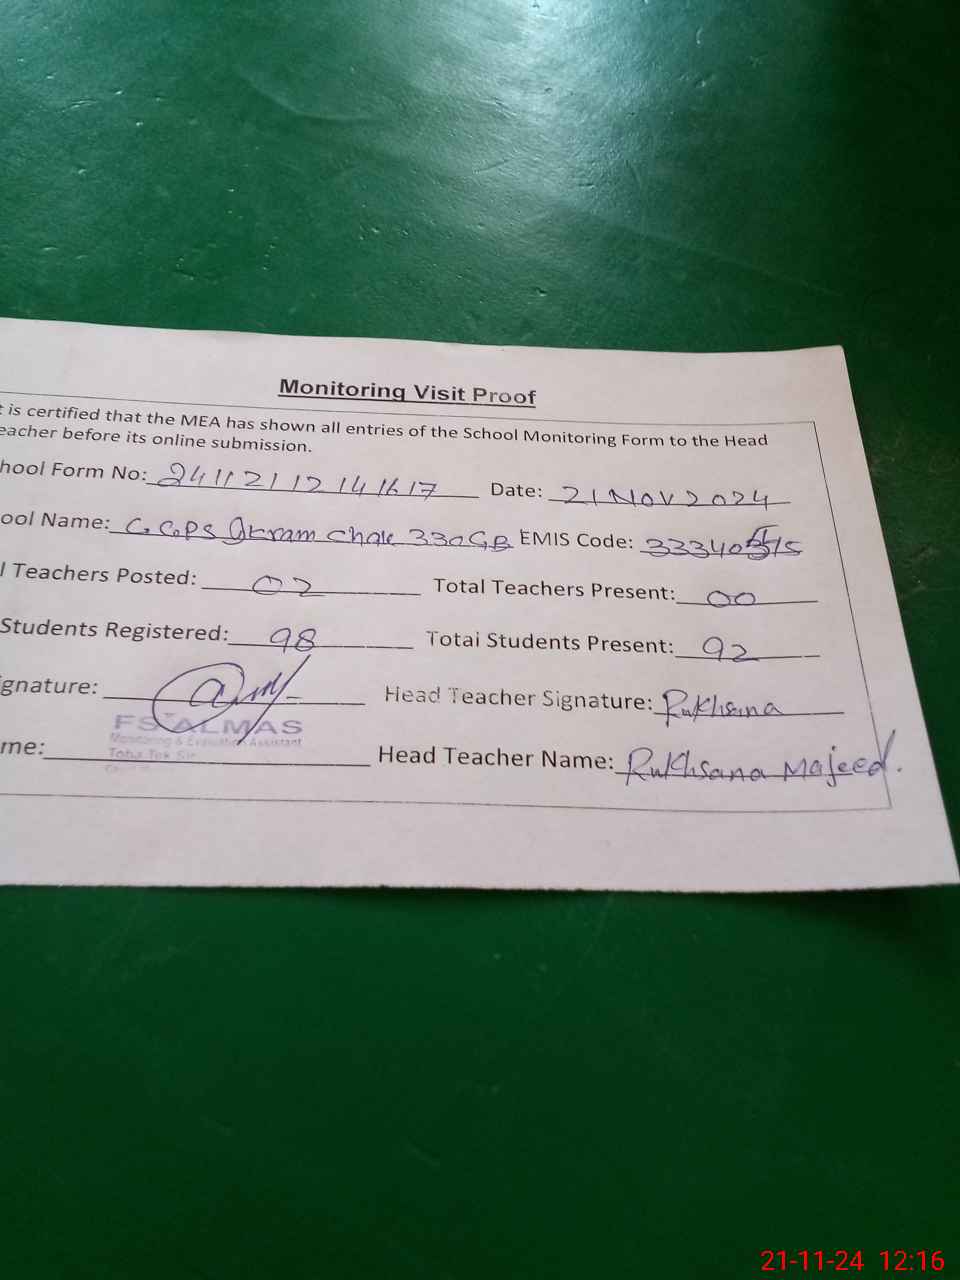 Monitoring Visit Proof
t is certified that the MEA has shown all entries of the School Monitoring Form to the Head
eacher before its online submission.
hool Form No: 24112112141617 Date: 21 NOV 2024
ool Name: G.GPS Ikram Chak 330GB EMIS Code: 33340
l Teachers Posted: 02 Total Teachers Present: 00
Students Registered: 98 Total Students Present: 92
gnature: Head Teacher Signature: Rukhsana
FS ALMAS
Monitoring & Evaluation Assistant
Toba Tek
me: Head Teacher Name: Rukhsana Majeed.
21-11-24 12:16